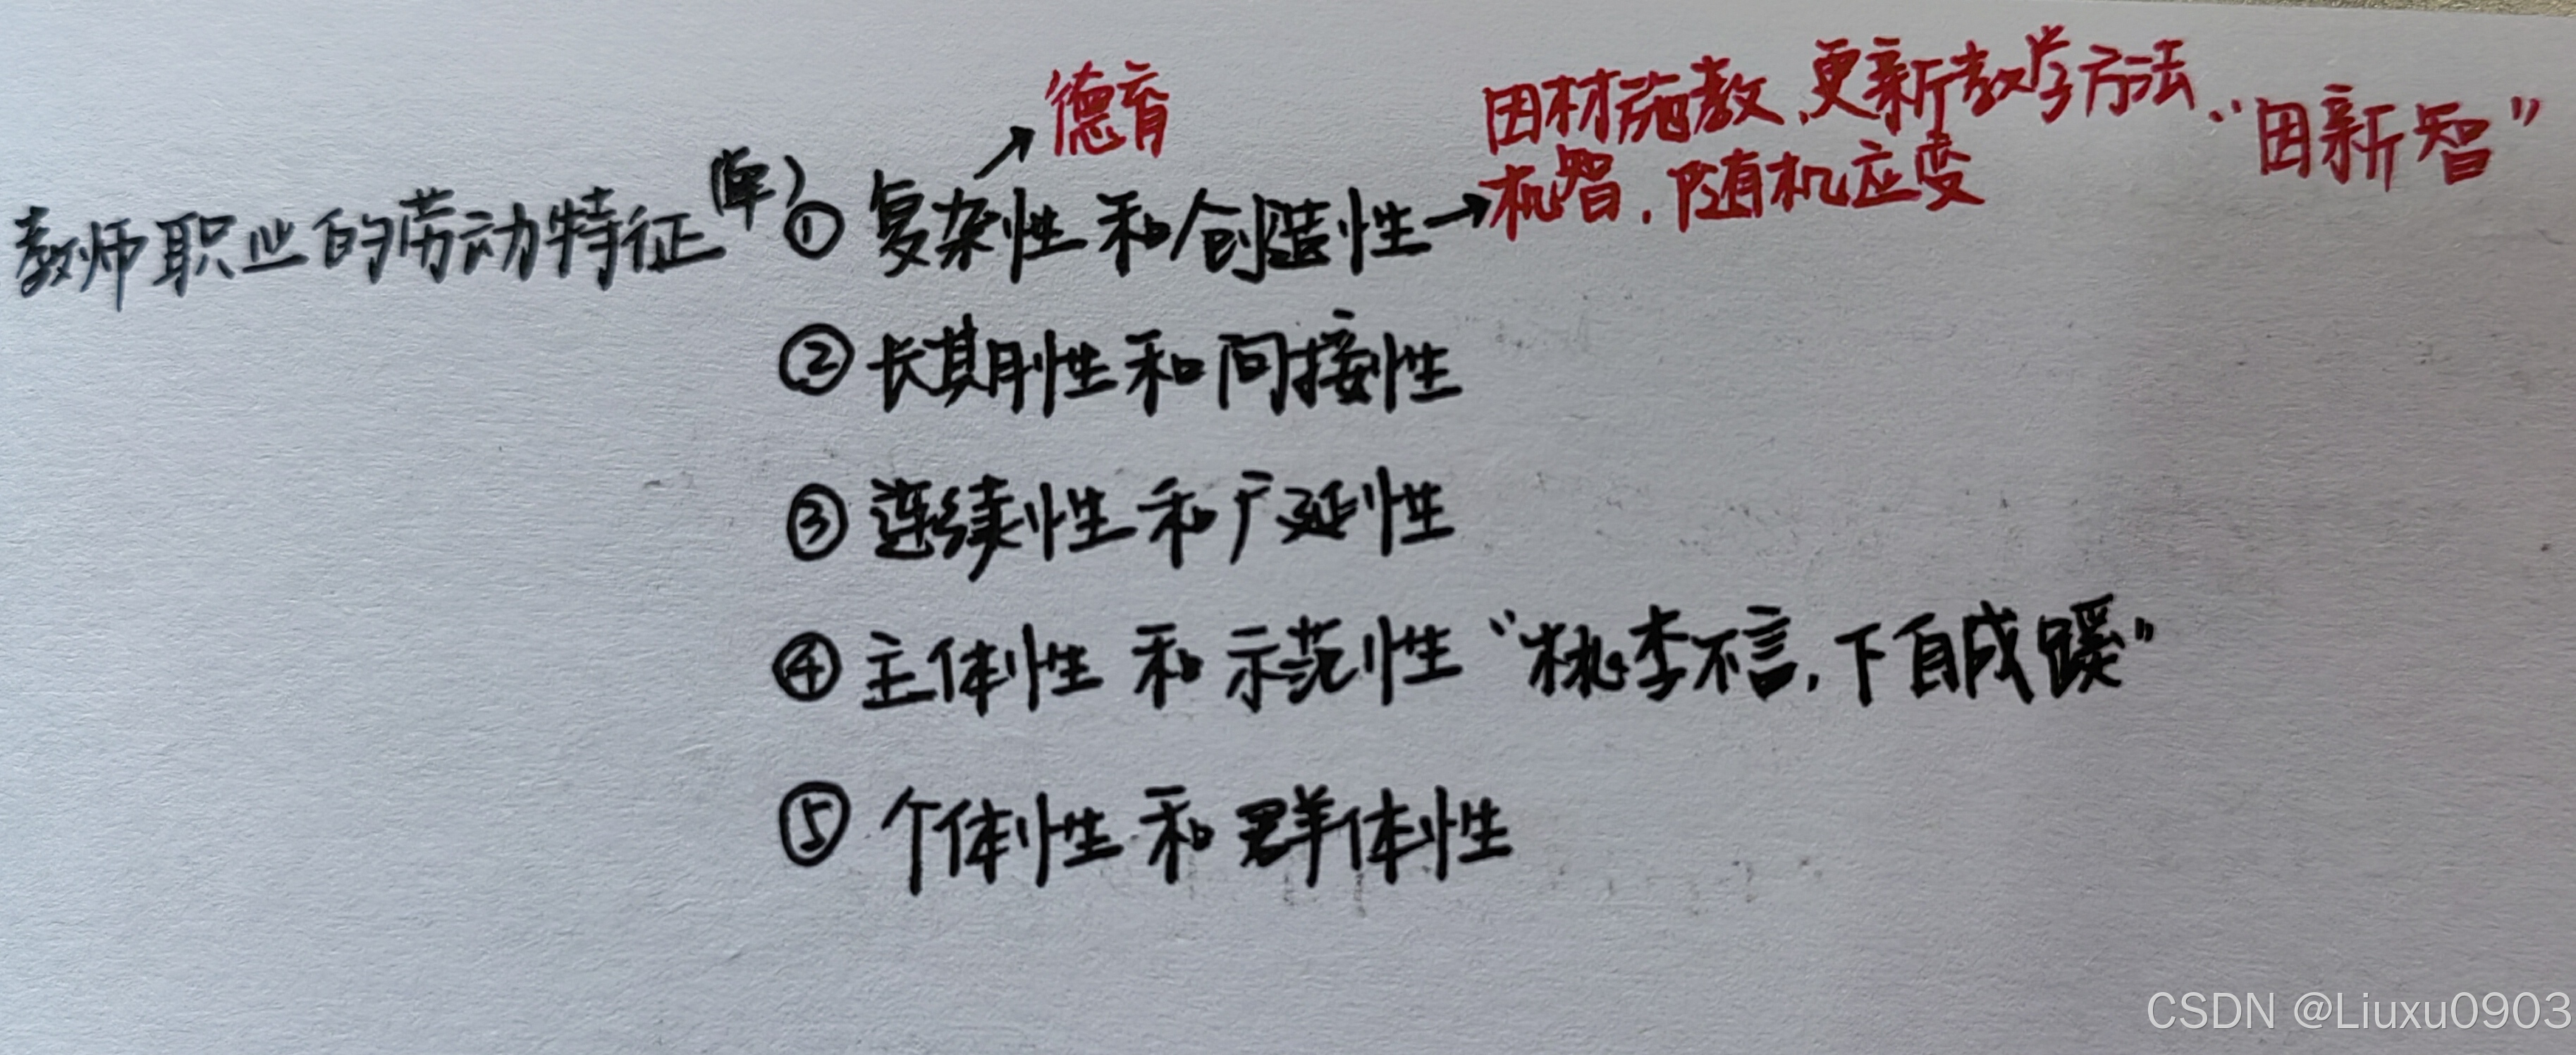 德育
因材施教、更新教学方法
机智,随机应变
“因新智”
教师职业的劳动特征(单)
① 复杂性和创造性
② 长期性和间接性
③ 连续性和广延性
④ 主体性和示范性“桃李不言,下自成蹊”
⑤ 个体性和群体性
CSDN @Liuxu0903